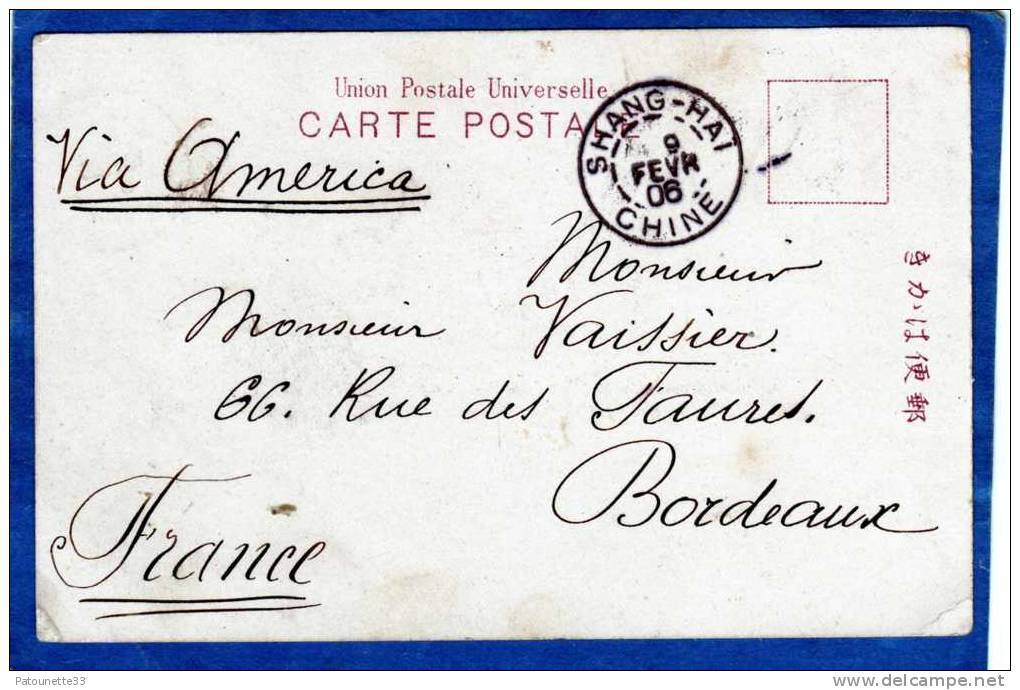 Union Postale Universelle
CARTE POSTALE
SHANG-HAÏ
9
FEVR
06
CHINE
Via America
Monsieur
Monsieur Vaissier.
66. Rue des Faures.
Bordeaux
France
きかは便郵
Patounette33
delcampe.net